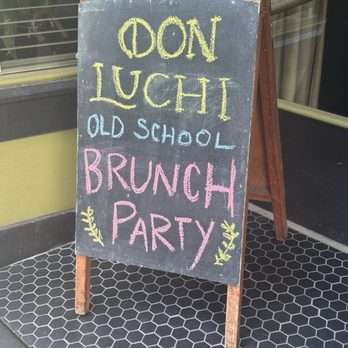 DON
LUCHI
OLD SCHOOL
BRUNCH
PARTY